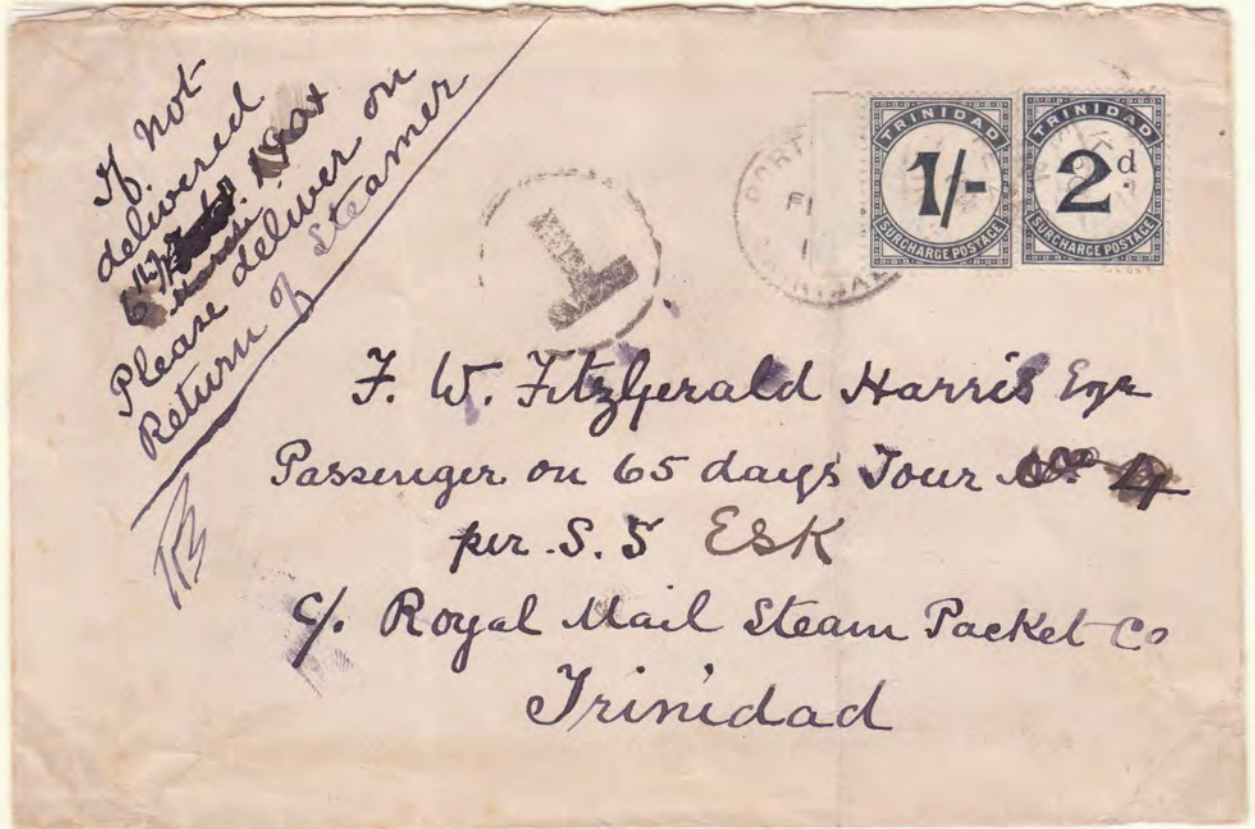 If not
delivered
Please deliver on
Return of Steamer
T
PORT
TRINIDAD
1/-
SURCHARGE POSTAGE
TRINIDAD
2d.
SURCHARGE POSTAGE
F. W. Fitzgerald Harris Esqr
Passenger on 65 days Tour No 4
per S.S ESK
c/. Royal Mail Steam Packet Co
Trinidad